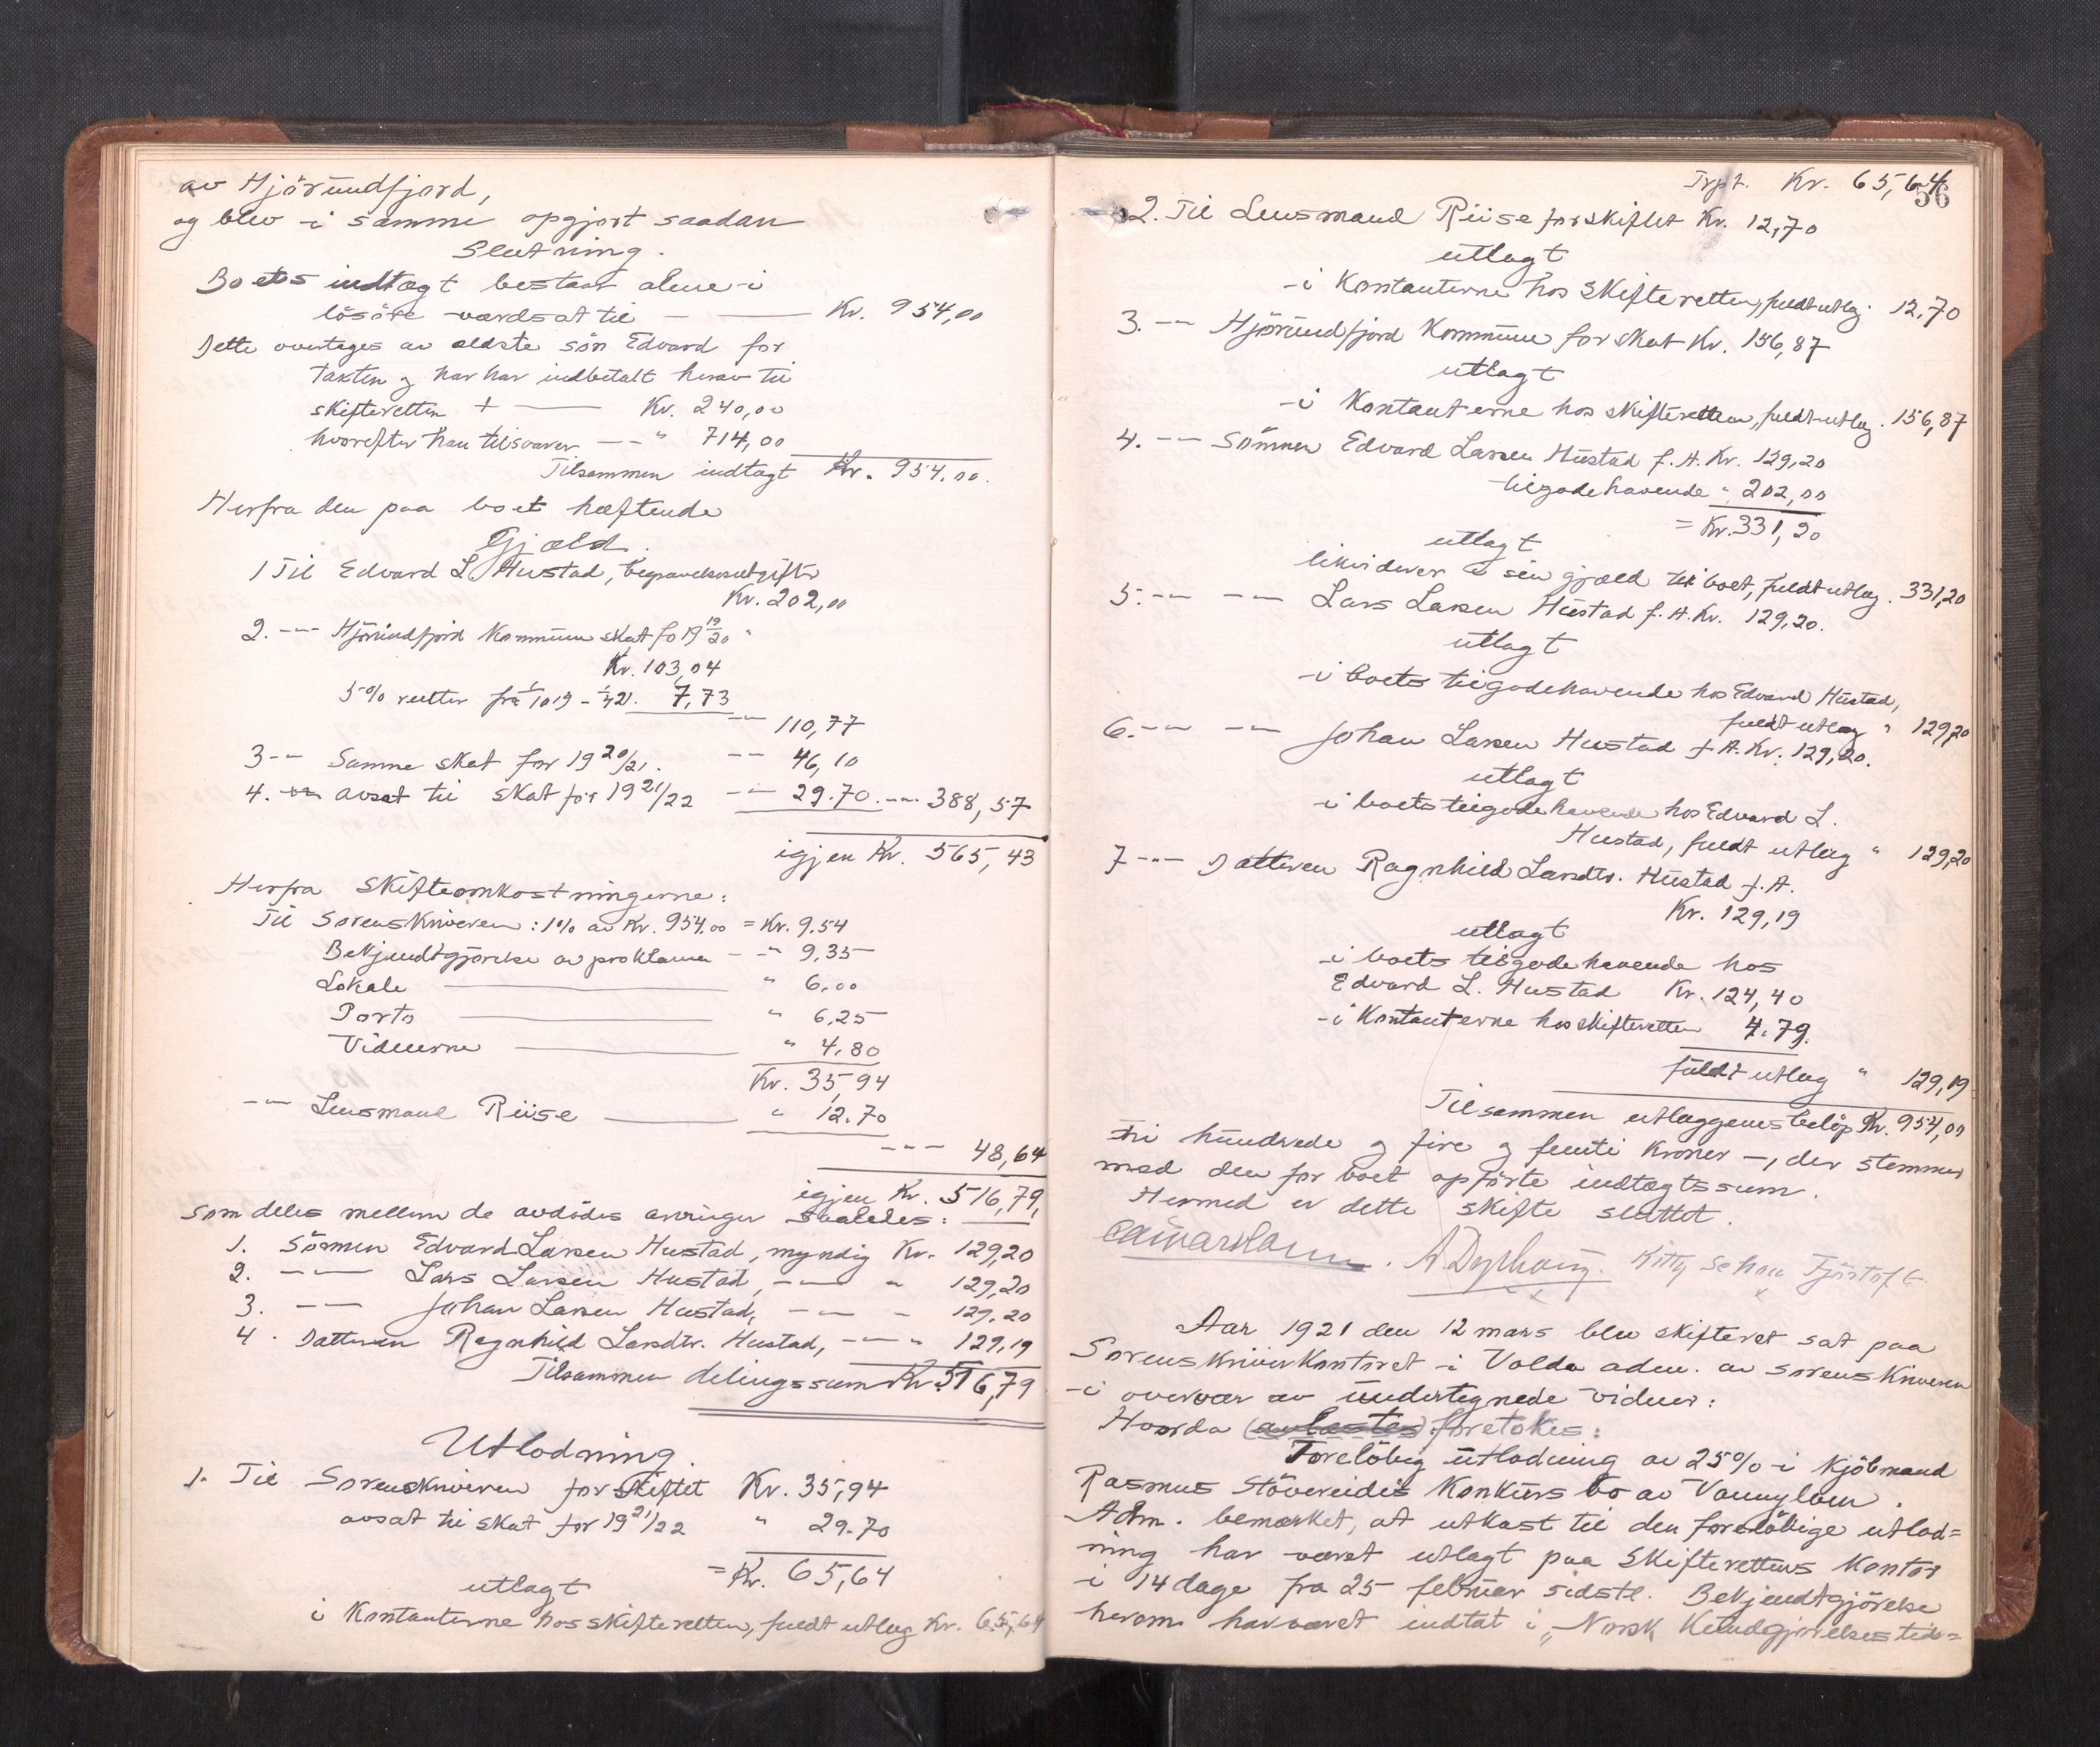 av Hjörundfjord,
og blev i samme opgjort saadan
Slutning.
Boets indtægt bestaar alene i
lösöre værdsat til — Kr. 954,00
Dette overtages av ældste sön Edvard for
taxten og har har indbetalt herav til
skifteretten + — Kr. 240,00
hvorefter han tilsvarer — " 714,00
Tilsammen indtægt Kr. 954.00.
Herfra den paa boet hæftende
Gjæld.
1 Til Edvard L Hustad, begravelsesutgifter
Kr. 202,00
2. -"- Hjörundfjord Kommune skat for 19 19/20 "
Kr. 103,04
5% renter fra 1/10 19 - 1/4 21. 7,73
-"- 110,77
3 -"- Samme skat for 19 20/21. -"- 46,10
4. avsat til skat for 19 21/22 -"- 29.70. -"- 388,57
igjen Kr. 565,43
Herfra skifteomkostningerne:
Til Sorenskriveren: 1% av Kr. 954.00 = Kr. 9.54
Bekjendtgjörelse av proklama - -"- 9,35
Lokale — " 6.00
Porto — " 6,25
Vidnerne — " 4.80
Kr. 35,94
-"- Lensmand Riise — " 12.70
-"- 48,64
igjen Kr. 516,79,
som deles mellem de avdödes arvinger saaledes:
1. Sönnen Edvard Larsen Hustad, myndig Kr. 129,20
2. -"- Lars Larsen Hustad, -"- " 129,20
3. -"- Johan Larsen Hustad, -"- - 129.20
4. Datteren Ragnhild Larsdtr. Hustad, -"- " 129,19
Tilsammen delingssum Kr. 516,79
Utlodning.
1. Til Sorenskriveren for skiftet Kr. 35,94
avsat til skat for 19 21/22 " 29.70
= Kr. 65,64
utlagt
i Kontanterne hos skifteretten, fuldt utlæg Kr. 65,64
56
Trpt. Kr. 65,64
2. Til Lensmand Riise for skiftet Kr. 12,70
utlagt
i Kontanterne hos skifteretten, fuldt utlæg. 12,70
3. -"- Hjörundfjord Kommune for skat Kr. 156,87
utlagt
i Kontanterne hos skifteretten, fuldt utlæg. 156,87
4. -"- Sönnen Edvard Larsen Hustad f. A. Kr. 129,20
tilgodehavende " 202,00
= Kr. 331,20
utlagt
likviderer i sin gjæld til boet, fuldt utlæg. 331,20
5. -"- -"- Lars Larsen Hustad f. A. Kr. 129,20.
utlagt
i boets tilgodehavende hos Edvard Hustad,
fuldt utlæg " 129,20
6. -"- -"- Johan Larsen Hustad f. A. Kr. 129,20.
utlagt
i boets tilgodehavende hos Edvard L.
Hustad, fuldt utlæg " 129,20
7 -"- Datteren Ragnhild Larsdtr. Hustad f. A.
Kr. 129,19
utlagt
i boets tilgodehavende hos
Edvard L. Hustad Kr. 124,40
i Kontanterne hos skifteretten 4.79.
fuldt utlæg " 129,19
Tilsammen utlæggenes belöp Kr. 954,00
ni hundrede og fire og femti Kroner —, der stemmer
med den for boet opförte indtægtssum.
Hermed er dette skifte sluttet.
A. Dyrhaug. Kitty Schau Fjörtoft.
Aar 1921 den 12 mars blev skifteret sat paa
Sorenskriverkontoret i Volda adm. av sorenskriveren
i overvær av undertegnede vidner:
Hvorda (avlastes) foretokes:
Forelöbig utlodning av 25% i Kjöbmand
Rasmus Stövereides Konkurs bo av Vannylven.
Adm. bemerket, at utkast til den forelöbige utlod=
ning har været utlagt paa Skifterettens Kontor
i 14 dage fra 25 februar sidstl. Bekjendtgjörelse
herom har været indtat i „Norsk Kundgjörelsestid=